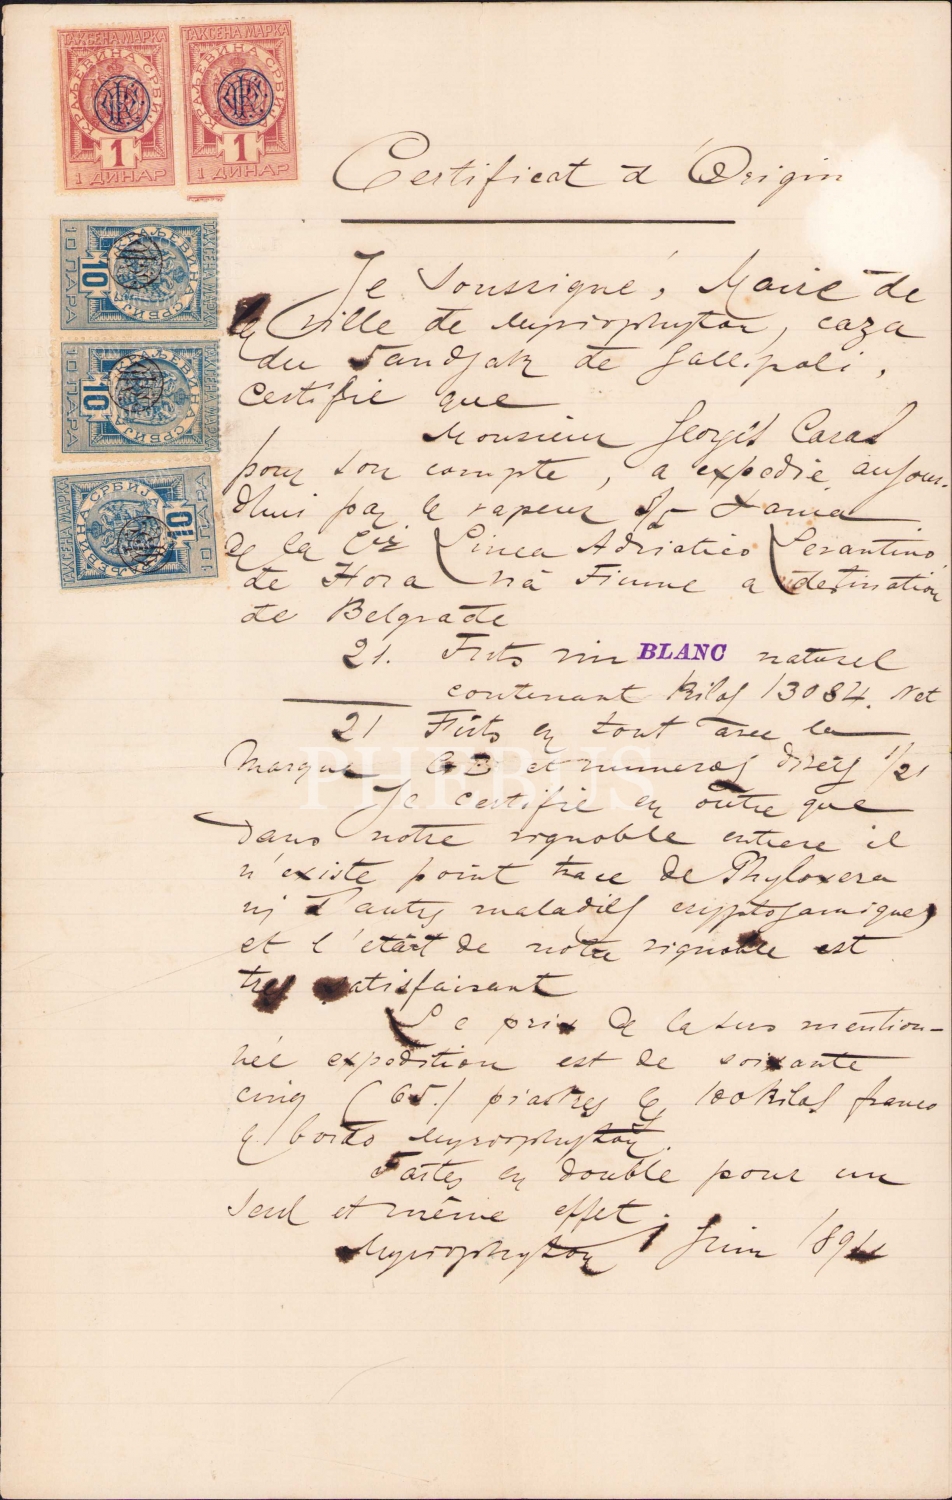 ТАКСЕНА МАРКА
КРАЉЕВИНА СРБИЈА
1
1 ДИНАР
ТАКСЕНА МАРКА
КРАЉЕВИНА СРБИЈА
1
1 ДИНАР
ТАКСЕНА МАРКА
КРАЉЕВИНА СРБИЈА
10
10 ПАРА
ТАКСЕНА МАРКА
КРАЉЕВИНА СРБИЈА
10
10 ПАРА
ТАКСЕНА МАРКА
КРАЉЕВИНА СРБИЈА
10
10 ПАРА
Certificat d'Origin
Je soussigné, Maire de
la ville de Myriophyton, caza
du Sandjak de Gallipoli,
certifie que
Monsieur Georges Caras
pour son compte, a expedie aujour-
d'hui par le vapeur
de la Cie Linea Adriatico Levantino
de Flora via Fiume a destination
de Belgrade
21. Futs vin BLANC naturel
contenant Kilos 13084. Net
21 Fûts en tout avec la
Marque et numeros divers 1/21
Je certifie en outre que
dans notre vignoble entiere il
n'existe point trace de Phyloxera
ni d'autres maladies cryptogamiques
et l'etat de notre vignoble est
tres satisfaisant
Le prix de la sus mention-
née expedition est de soixante
cinq (65.) piastres les 100 Kilos franco
a bordo Myriophyton.
Faites en double pour un
seul et même effet.
Myriophyton 1 Juin 189
PHEBUS